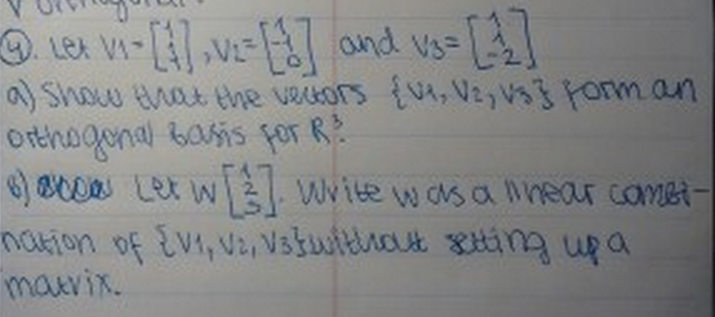 orthogonal.
4. Let V1=[1 1 1], V2=[1 -1 0] and V3=[1 1 -2]
a) Show that the vectors {V1, V2, V3} form an
orthogonal basis for R³.
b) Let W[1 2 3]. Write w as a linear combi-
nation of {V1, V2, V3} without setting up a
matrix.